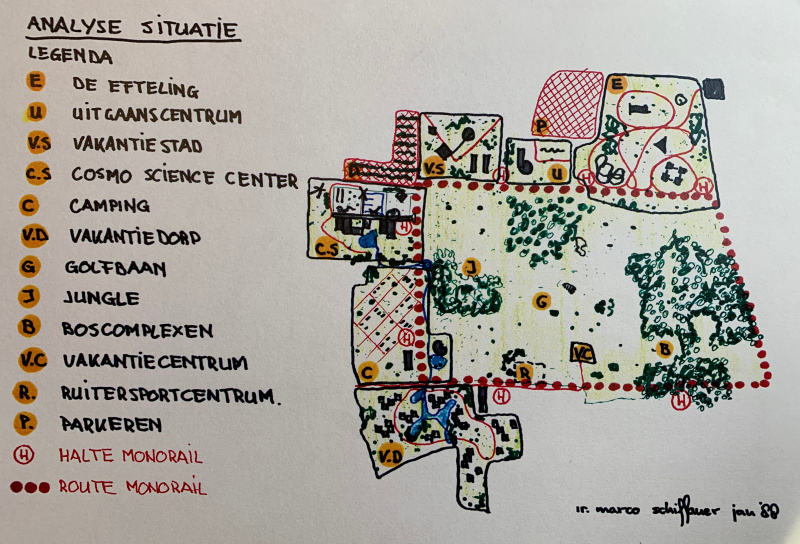 ANALYSE SITUATIE
LEGENDA
E DE EFTELING
U UITGAANSCENTRUM
V.S VAKANTIESTAD
C.S COSMO SCIENCE CENTER
C CAMPING
V.D VAKANTIEDORP
G GOLFBAAN
J JUNGLE
B BOSCOMPLEXEN
V.C VAKANTIECENTRUM
R. RUITERSPORTCENTRUM.
P. PARKEREN
H HALTE MONORAIL
ROUTE MONORAIL
E
P
V.S
U
H
H
H
H
C.S
J
G
H
C
R
V.C
B
H
H
V.D
ir. marco schiffauer jan '88